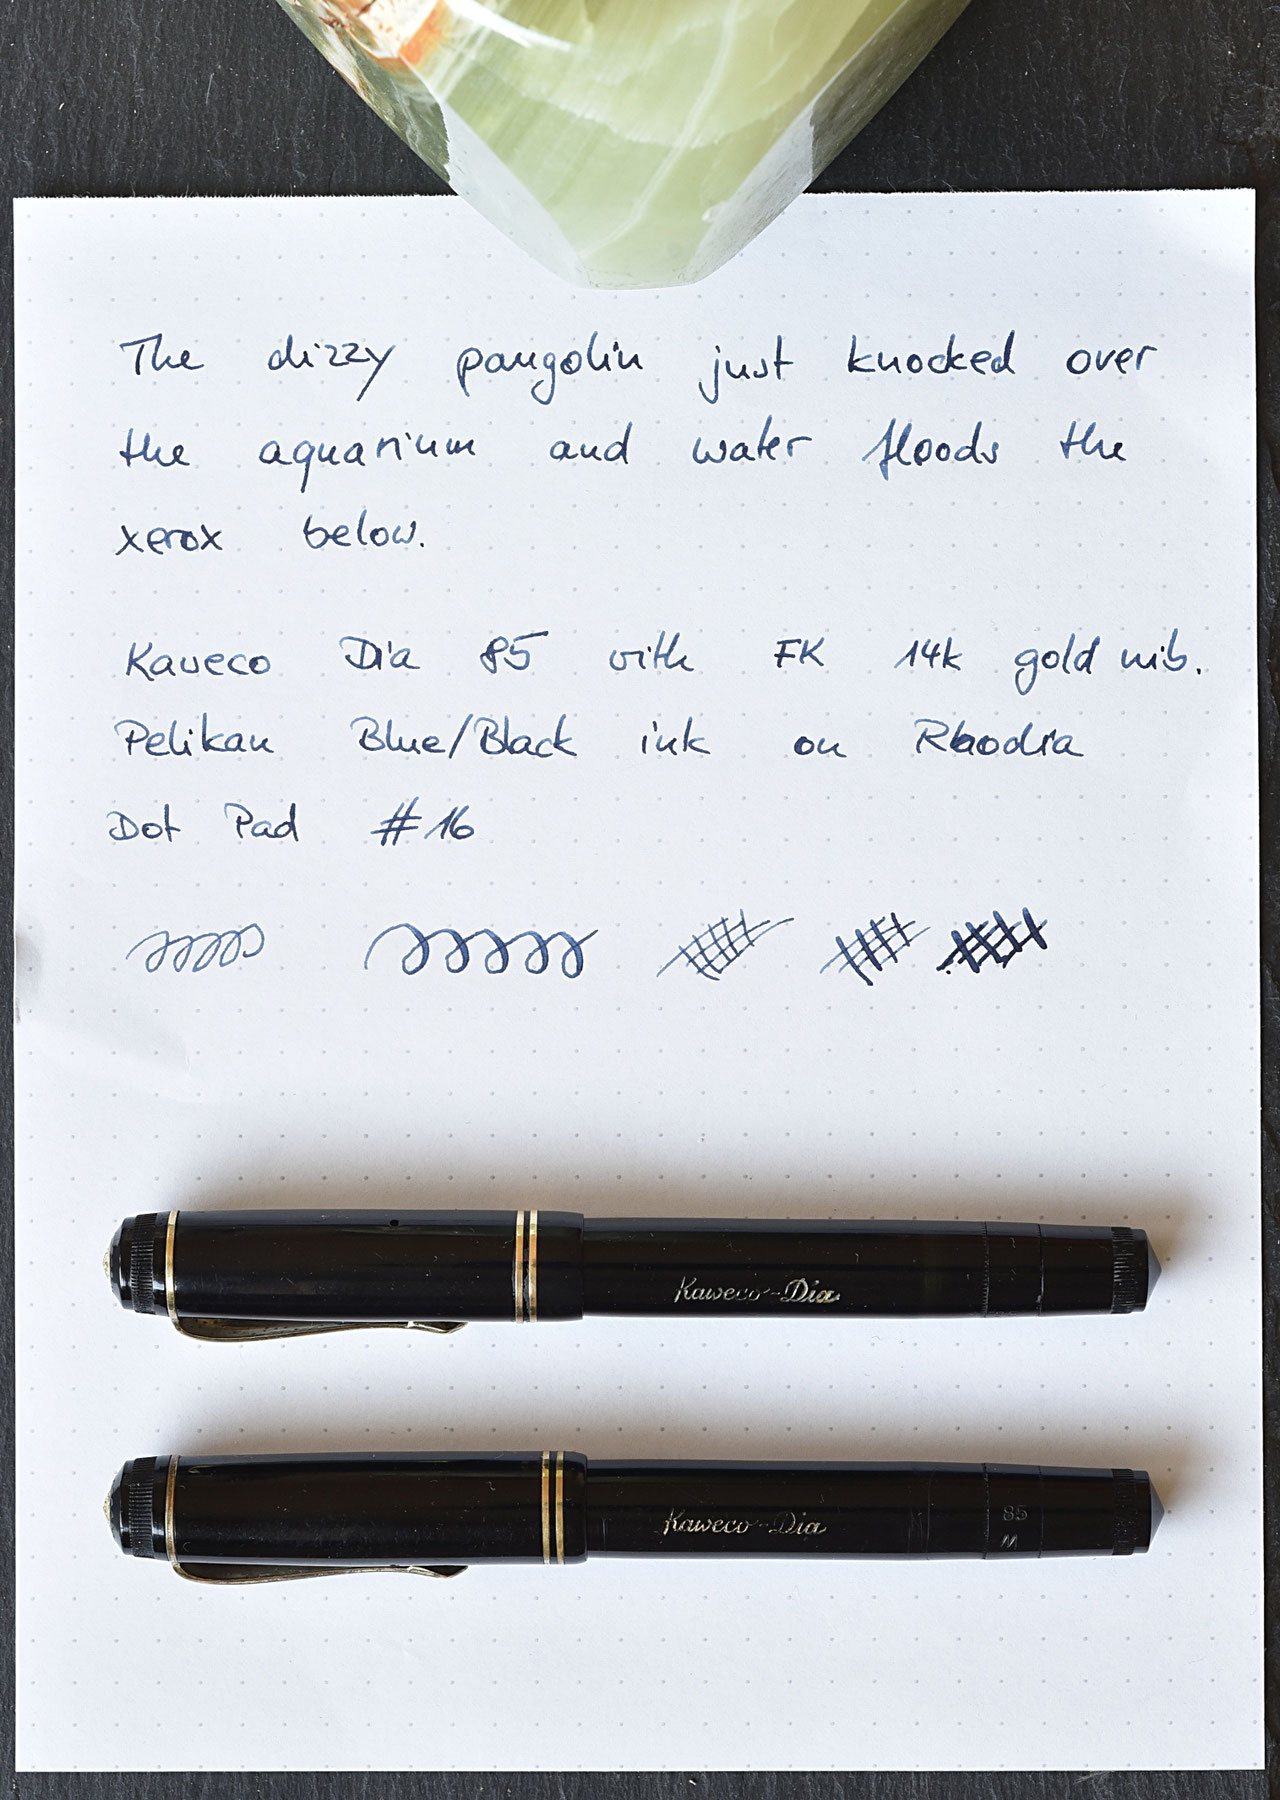 The dizzy pangolin just knocked over
the aquarium and water floods the
xerox below.
Kaweco Dia 85 with FK 14k gold nib.
Pelikan Blue/Black ink on Rhodia
Dot Pad #16
Kaweco-Dia
Kaweco-Dia
85
M